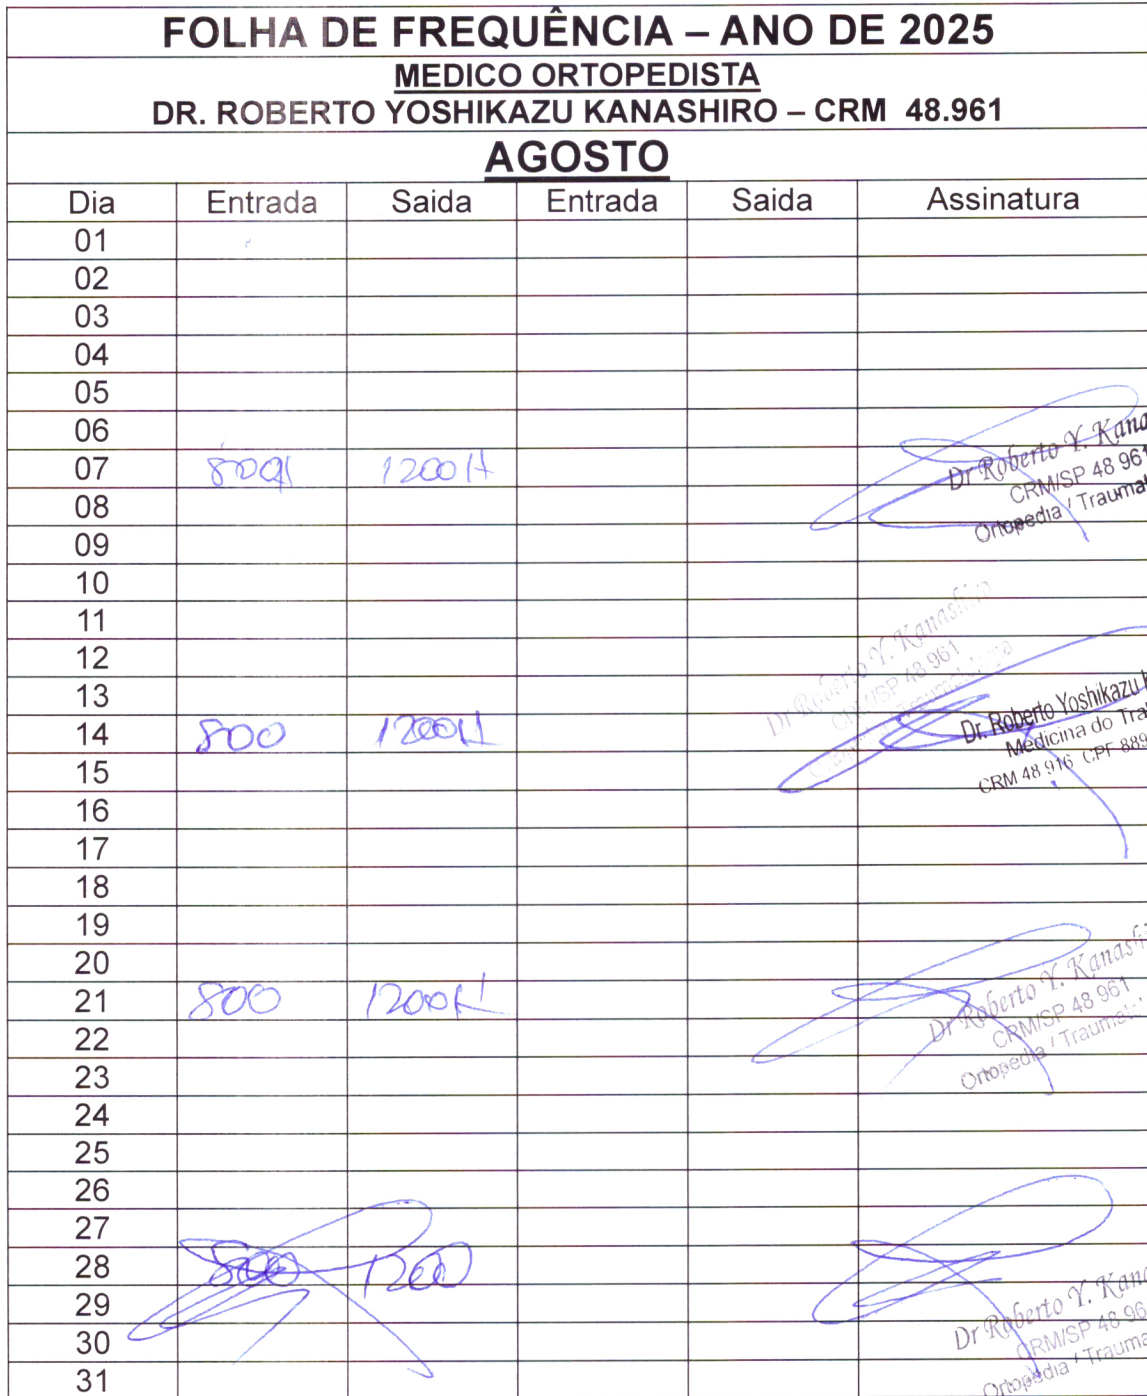 FOLHA DE FREQUÊNCIA – ANO DE 2025
MEDICO ORTOPEDISTA
DR. ROBERTO YOSHIKAZU KANASHIRO – CRM 48.961
AGOSTO
Dia Entrada Saida Entrada Saida Assinatura
01
02
03
04
05
06
07 800H 1200H
Dr Roberto Y. Kana
CRM/SP 48 961
Ortopedia / Traumat
08
09
10
11
12
13
Dr Roberto Y. Kanashiro
CRM/SP 48 961
14 800 1200H
Dr. Roberto Yoshikazu K
Medicina do Tra
CRM 48 916 CPF 889
15
16
17
18
19
20
21 800 1200H
Dr Roberto Y. Kanashi
CRM/SP 48 961
Ortopedia / Traumat
22
23
24
25
26
27
28 800 1200
29
30
Dr Roberto Y. Kana
CRM/SP 48 96
Ortopedia / Trauma
31